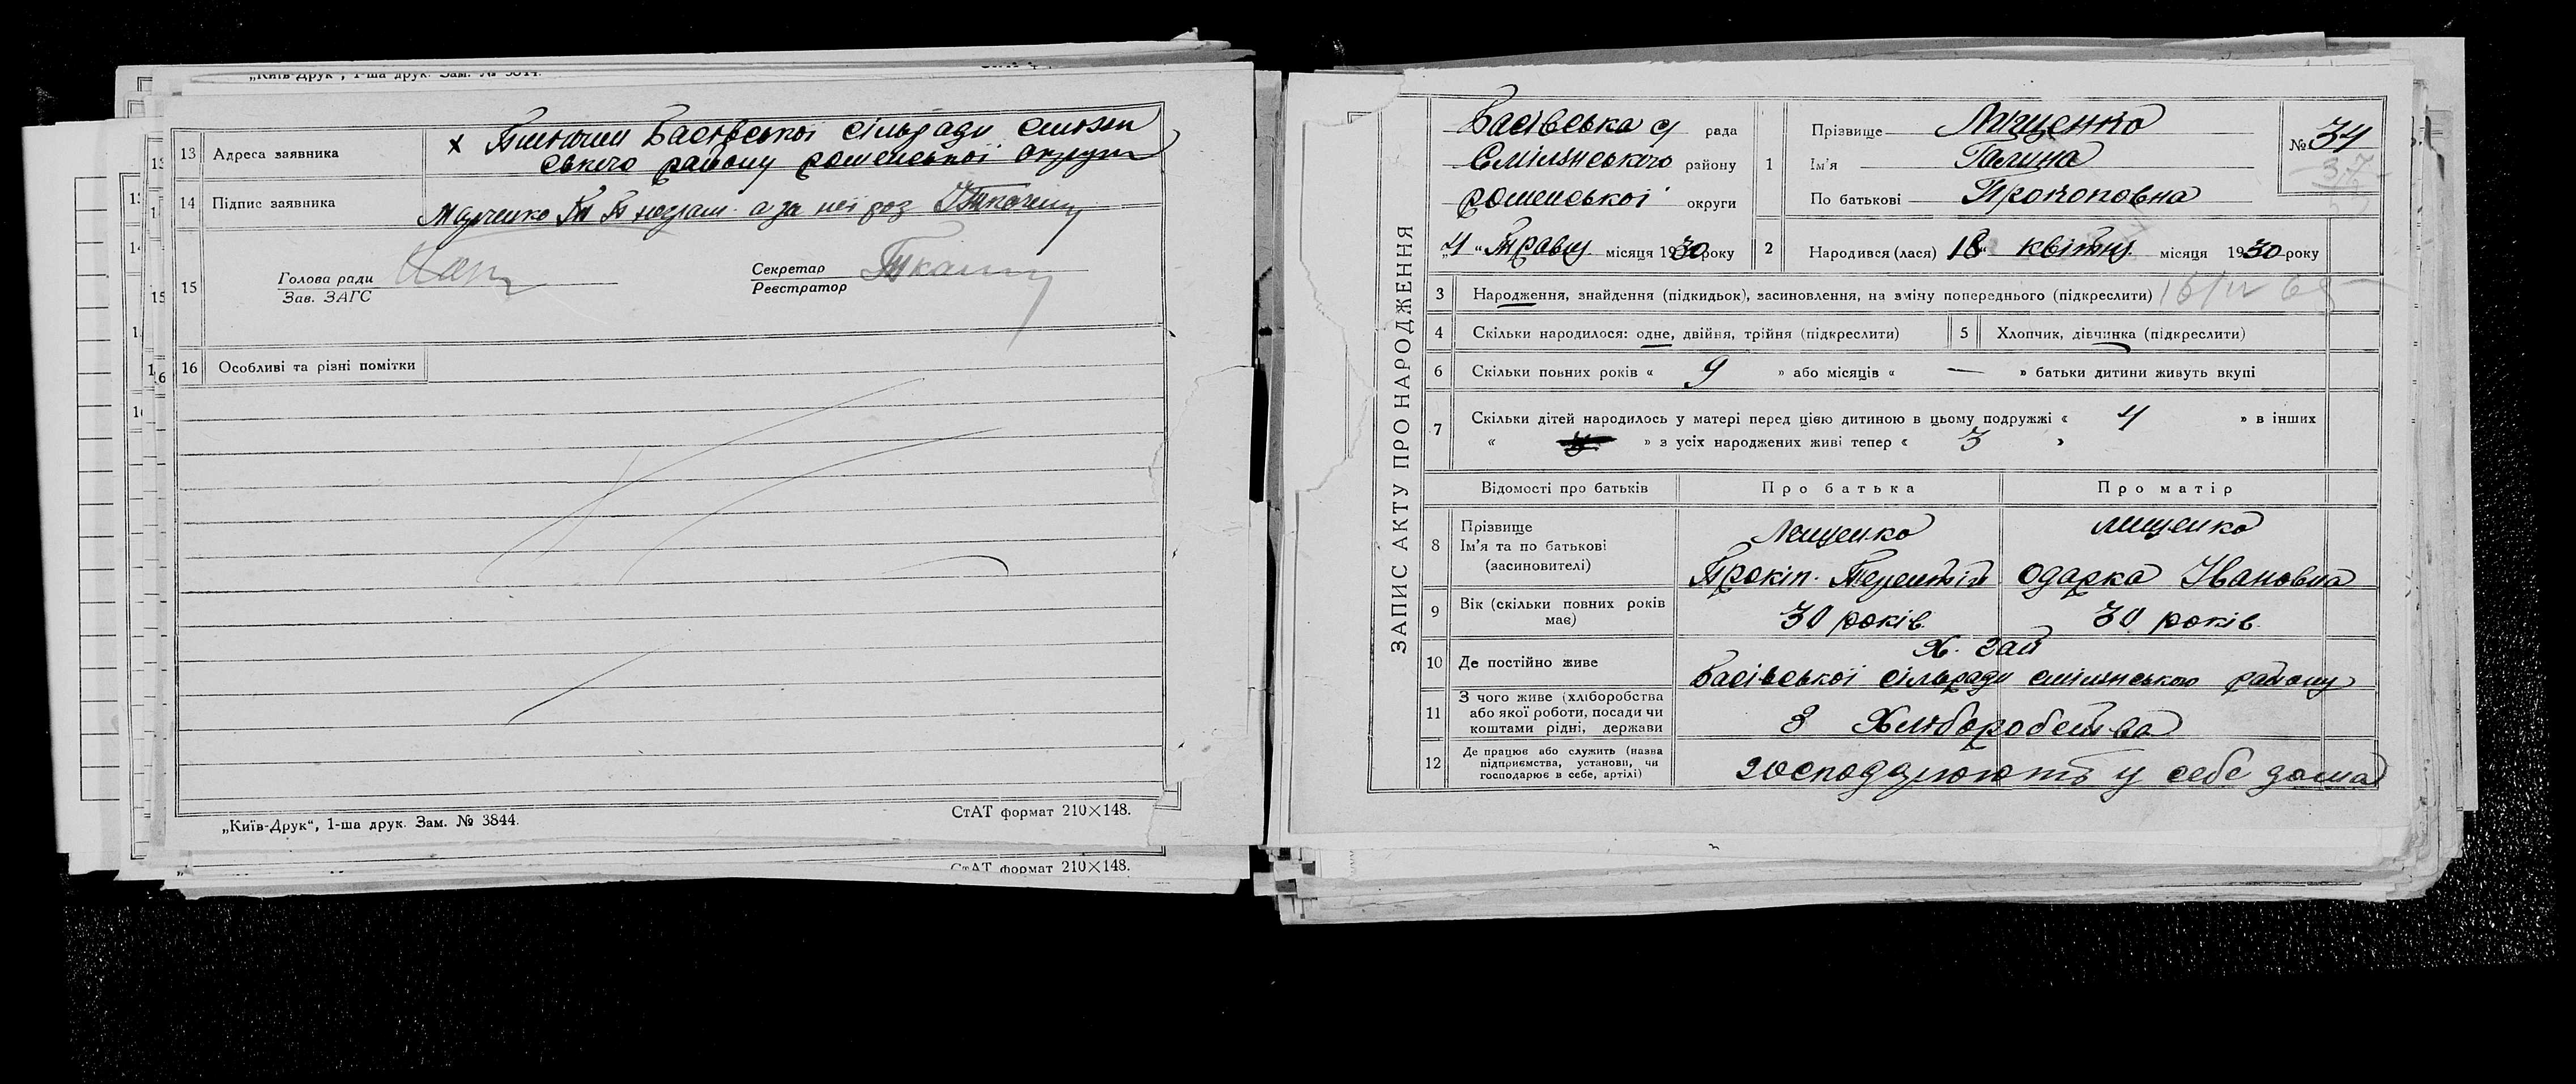 „Київ-Друк", 1-ша друк. Зам. № 3844.
13 Адреса заявника
х Басівської сільради смілян
ського району роменської округи
14 Підпис заявника
Марченко неграм. а за неї роз Ткаченко
15 Голова ради
Зав. ЗАГС
Секретар
Реєстратор
16 Особливі та різні помітки
„Київ-Друк", 1-ша друк. Зам. № 3844.
СтАТ формат 210×148.
СтАТ формат 210×148.
ЗАПИС АКТУ ПРО НАРОДЖЕННЯ
Басівська с рада
Смілянського району
роменської округи
„4" Травня місяця 1930 року
1 Прізвище Лищенко
Ім'я Галина
По батькові Прокоповна
№ 34
37
2 Народився (лася) 18 квітня місяця 1930 року
3 Народження, знайдення (підкидьок), засиновлення, на зміну попереднього (підкреслити)
4 Скільки народилося: одне, двійня, трійня (підкреслити)
5 Хлопчик, дівчинка (підкреслити)
6 Скільки повних років « 9 » або місяців « — » батьки дитини живуть вкупі
7 Скільки дітей народилось у матері перед цією дитиною в цьому подружжі « 4 » в інших
« » з усіх народжених живі тепер « 3 »
Відомості про батьків
Про батька
Про матір
8 Прізвище
Ім'я та по батькові
(засиновителі)
Лищенко
Прокіп Терентій
лищенко
Одарка Івановна
9 Вік (скільки повних років має)
30 років
30 років
10 Де постійно живе
Х. Гай
Басівської сільради смілянського району
11 З чого живе (хліборобства
або якої роботи, посади чи
коштами рідні, держави
З Хліборобства
12 Де працює або служить (назва
підприємства, установи, чи
господарює в себе, артілі)
господарюють у себе дома